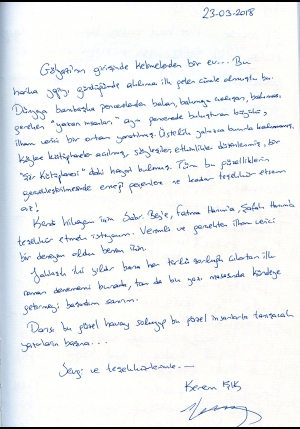 23-03-2018
girişinde kelimelerden bir ev... Bu
harika yapıyı gördüğümde aklıma ilk gelen cümle olmuştu bu.
Dünyaya bambaşka pencerelerden bakan, bakmaya çalışan, bakması
gereken "yazan insanları" aynı pencerede buluşturan büyülü,
ilham verici bir ortam yaratılmış. Üstelik yalnızca bununla kalınmamış,
köylere kütüphaneler açılmış, söyleşiler etkinlikler düzenlenmiş, bir
"Şiir Kütüphanesi" daki hayat bulmuş. Tüm bu güzelliklerin
gerçekleştirilmesinde emeği geçenlere ne kadar teşekkür etsem
az!
Kendi hikayem için Sabr. Bey'e, Fatma Hanım'a, Şafak Hanım'a
teşekkür etmek istiyorum. Verimli ve gerçekten ilham verici
bir deneyim oldu benim için.
Yaklaşık iki yıldır bana her türlü zorluğu çıkartan ilk
roman denememi burada, tam da bu yazı masasında kündeye
getirmeyi başardım sanırım.
Darısı bu güzel havayı soluyup bu güzel insanlarla tanışacak
yazarların başına...
Sevgi ve teşekkürlerimle —
Kerem Işık